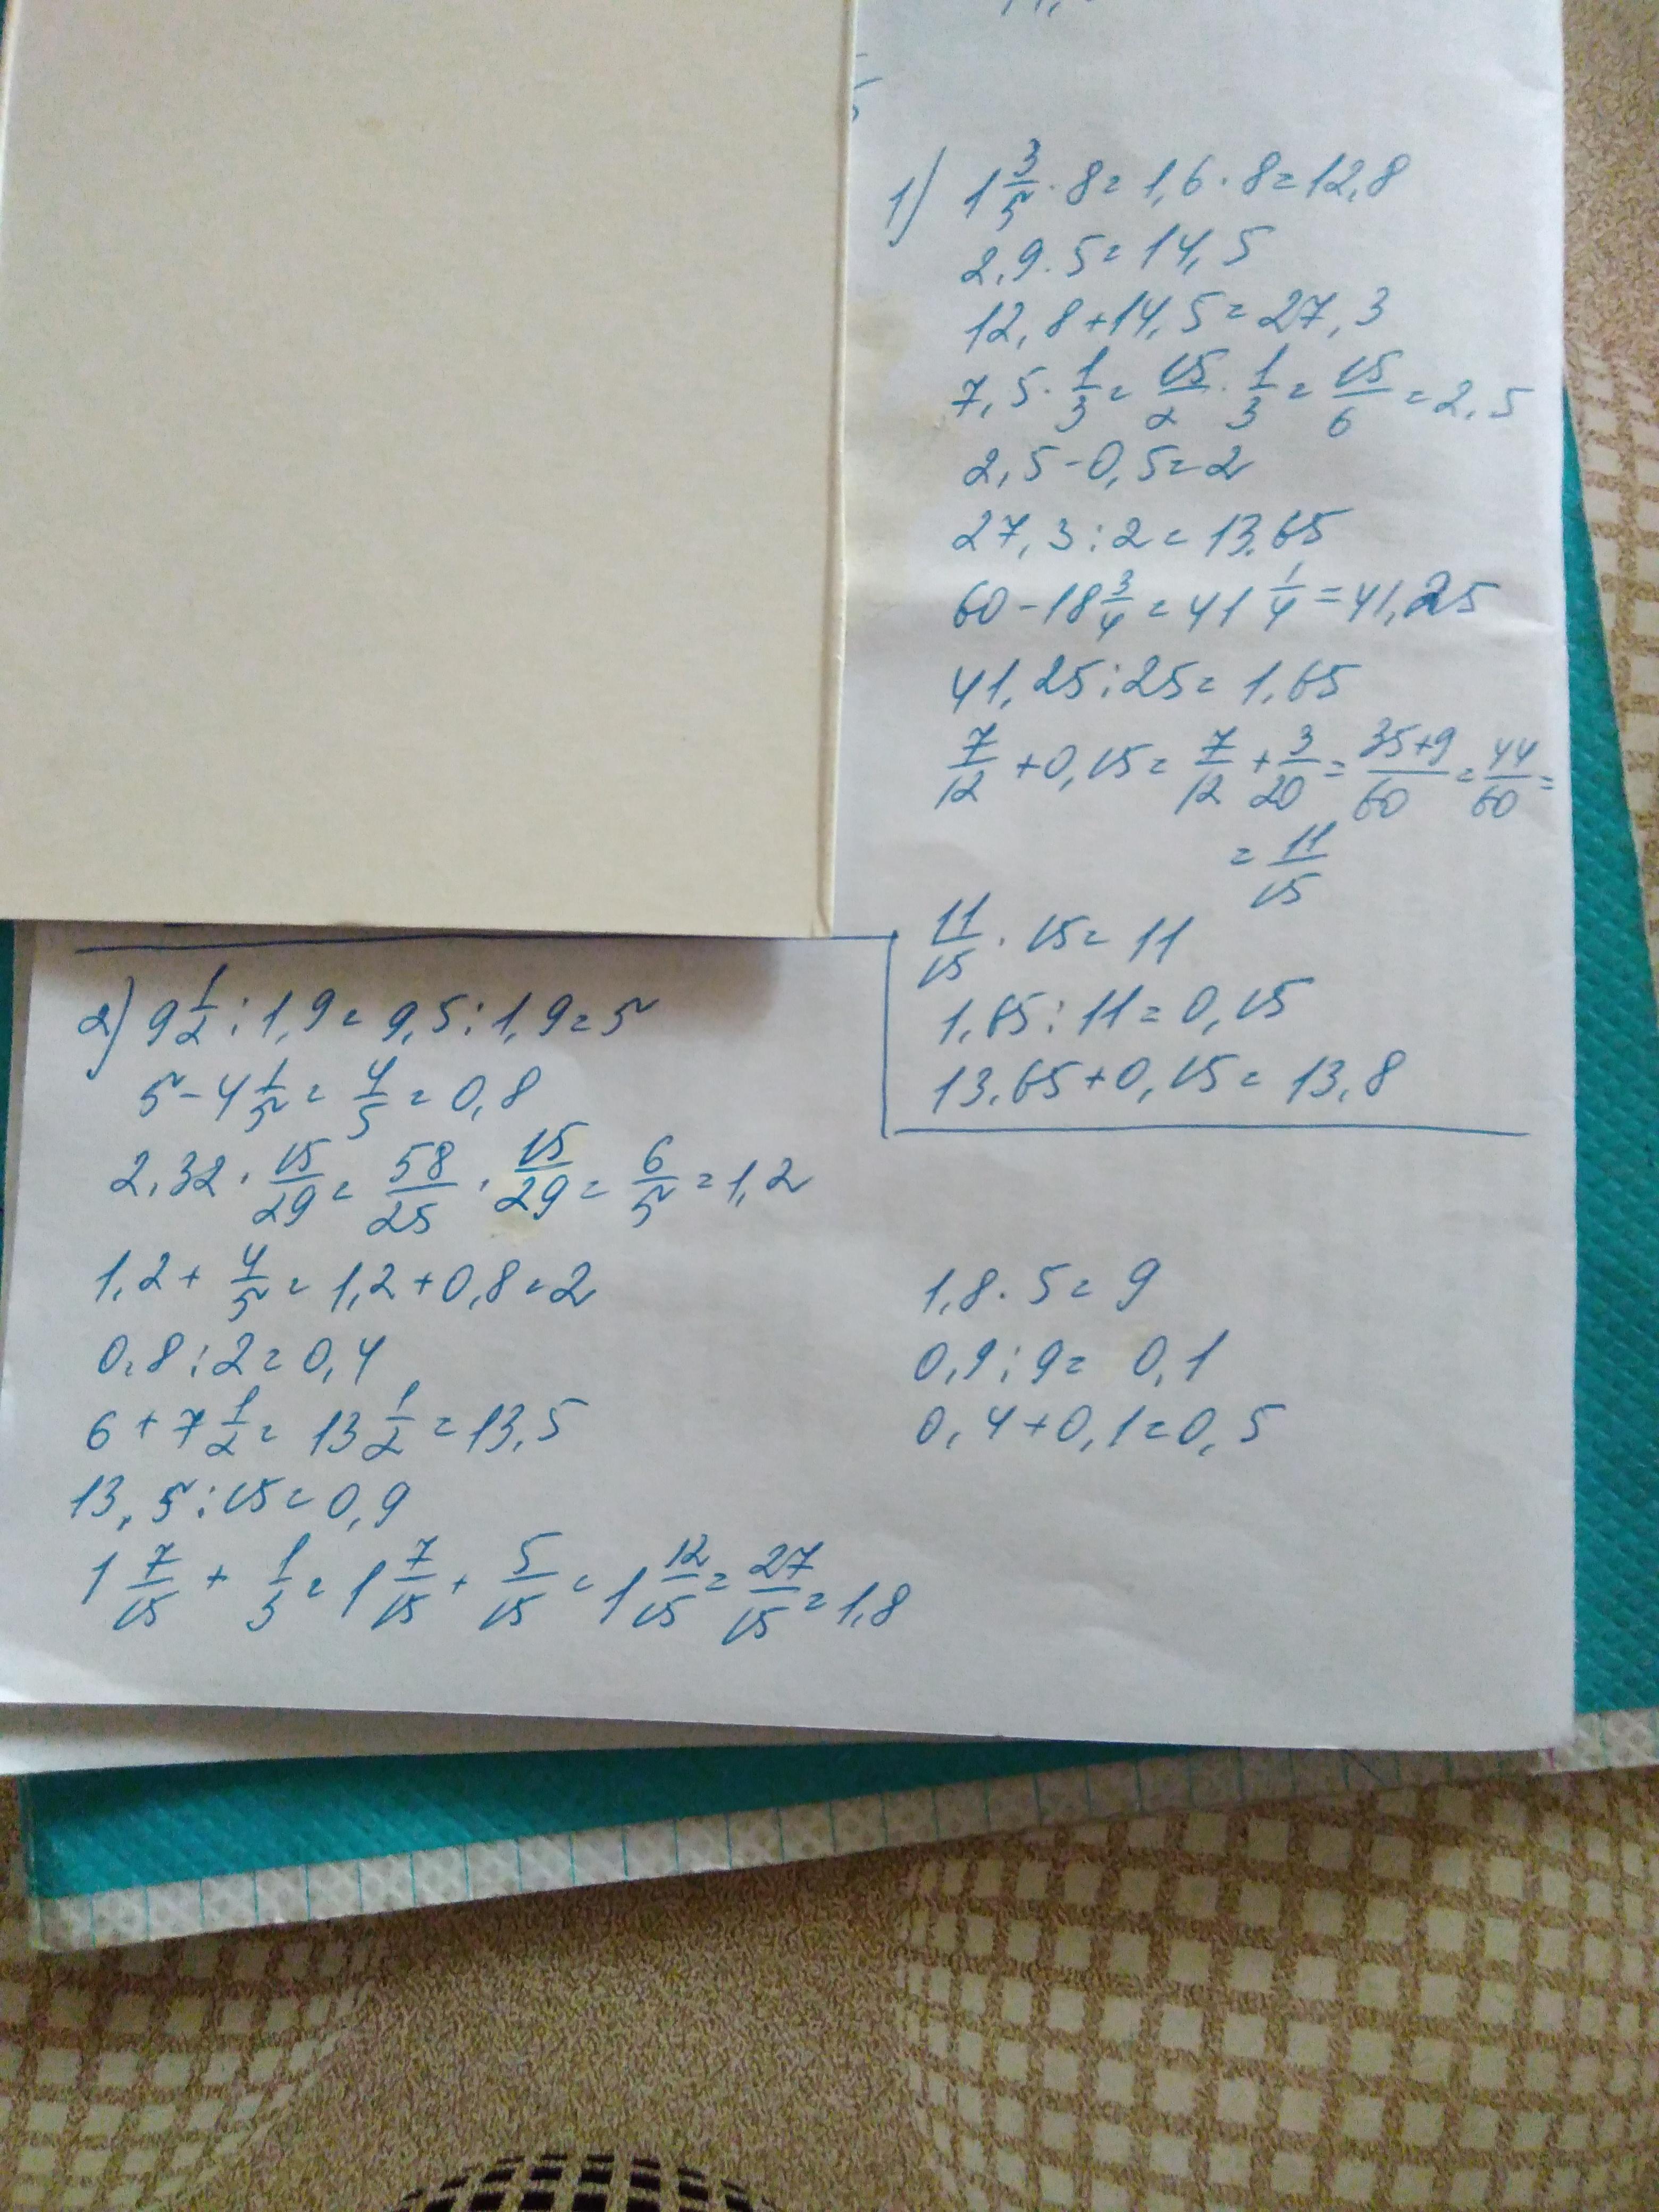 1) 1 3/5 · 8 = 1,6 · 8 = 12,8
2,9 · 5 = 14,5
12,8 + 14,5 = 27,3
7,5 · 1/3 = 15/2 · 1/3 = 15/6 = 2,5
2,5 - 0,5 = 2
27,3 : 2 = 13,65
60 - 18 3/4 = 41 1/4 = 41,25
41,25 : 25 = 1,65
7/12 + 0,15 = 7/12 + 3/20 = 35+9/60 = 44/60 =
= 11/15
11/15 · 15 = 11
1,65 : 11 = 0,15
13,65 + 0,15 = 13,8
2) 9 1/2 : 1,9 = 9,5 : 1,9 = 5
5 - 4 1/5 = 4/5 = 0,8
2,32 · 15/29 = 58/25 · 15/29 = 6/5 = 1,2
1,2 + 4/5 = 1,2 + 0,8 = 2
0,8 : 2 = 0,4
6 + 7 1/2 = 13 1/2 = 13,5
13,5 : 15 = 0,9
1 7/15 + 1/3 = 1 7/15 + 5/15 = 1 12/15 = 27/15 = 1,8
1,8 · 5 = 9
0,9 : 9 = 0,1
0,4 + 0,1 = 0,5